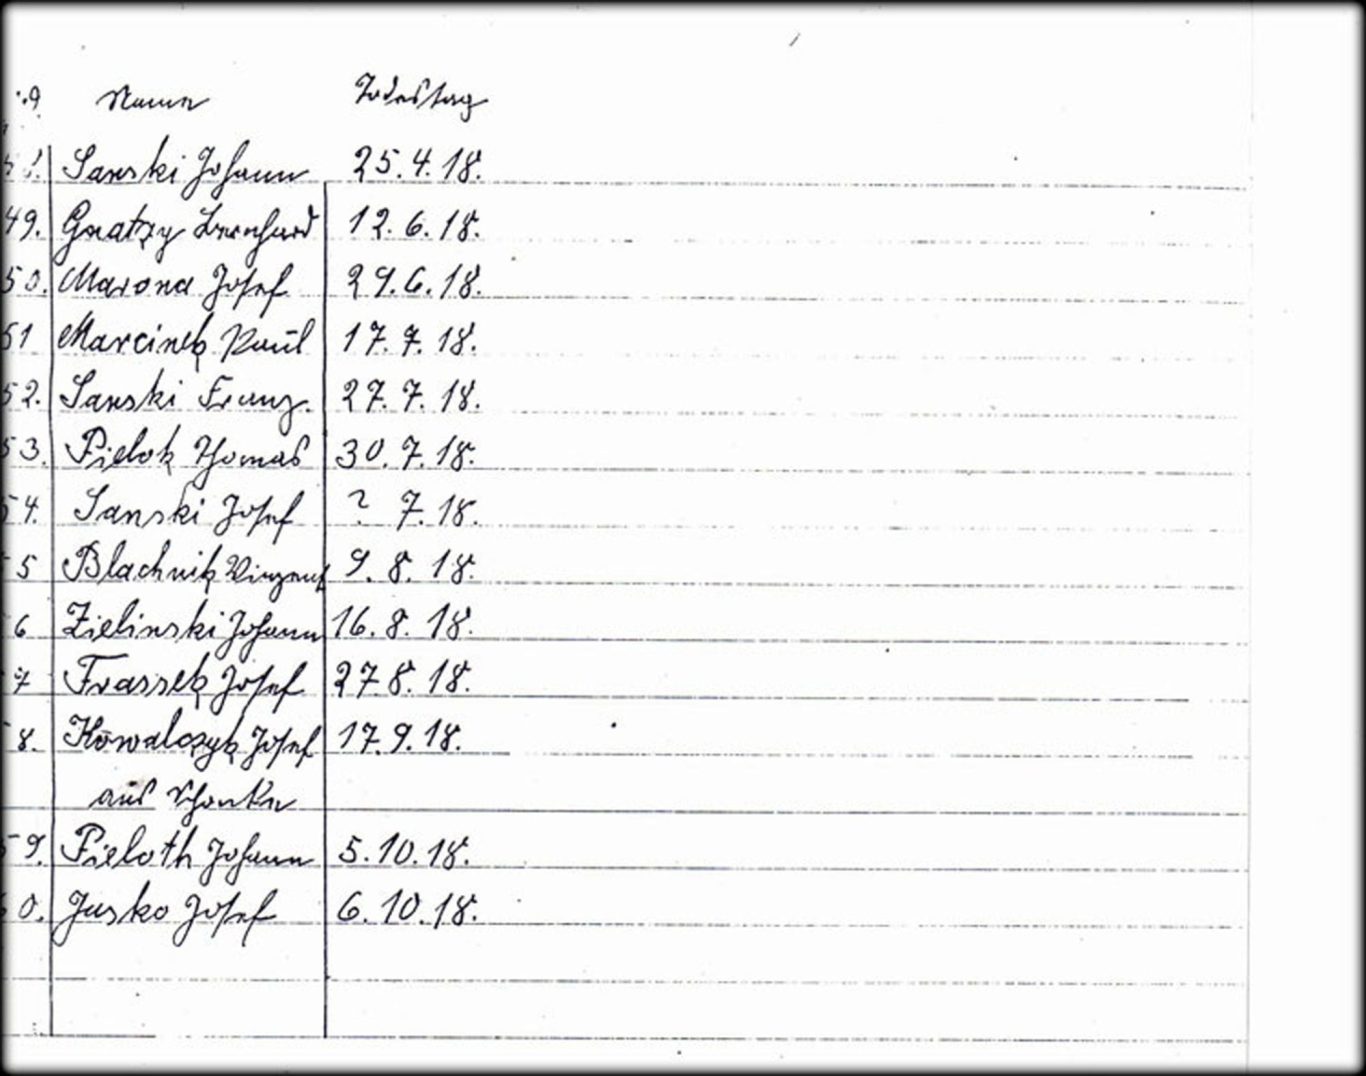 Name Todestag
Sanski Johann 25.4.18.
49. Gnatzy Leonhard 12.6.18.
50. Marona Josef 29.6.18.
51 Marcinek Paul 17.7.18.
52. Sanski Franz. 27.7.18.
53. Pielok Thomas 30.7.18.
54. Sanski Josef ? 7.18.
5 Blachnik Vinzent 9.8.18.
6 Zielinski Johann 16.8.18.
7 Frassek Josef 27.8.18.
8. Kowalczyk Josef 17.9.18.
aus
59. Pieloth Johann 5.10.18.
60. Jusko Josef 6.10.18.